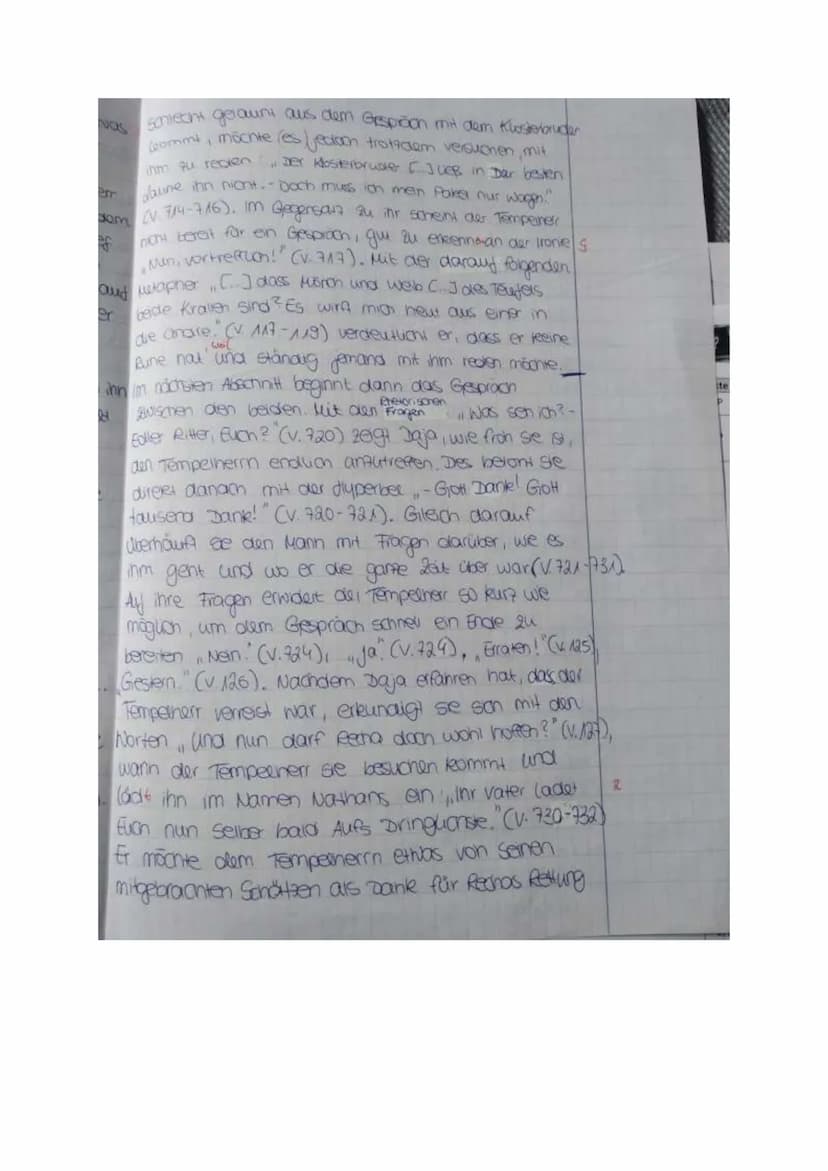 schlecht gelaunt aus dem Gespräch mit dem Klosterbruder
kommt, möchte (es) jedoch trotzdem versuchen, mit
ihm zu reden: „Der Klosterbruder [...] ließ in Der besten
Laune ihn nicht. - Doch muss ich mein Paket nur wagen."
(V. 714-716). Im Gegensatz zu ihr scheint der Tempelherr
nicht bereit für ein Gespräch, gut zu erkennen an der Ironie
„Nun, vortrefflich!" (V. 717). Mit der darauf folgenden
Metapher „[...] dass Mönch und Weib [...] des Teufels
beide Krallen sind? Es wirft mich heut aus einer in
die andre." (V. 117-119) verdeutlicht er, dass er keine
Ruhe hat weil und ständig jemand mit ihm reden möchte.
Im nächsten Abschnitt beginnt dann das Gespräch
zwischen den beiden. Mit den rhetorischen Fragen „Was seh ich? -
Edler Ritter, Euch?" (V. 720) zeigt Daja, wie froh sie ist,
den Tempelherrn endlich anzutreffen. Des betont sie
direkt danach mit der Hyperbel „- Gott Dank! Gott
tausend Dank!" (V. 720-721). Gleich darauf
überhäuft sie den Mann mit Fragen darüber, wie es
ihm geht und wo er die ganze Zeit über war (V. 721-731)
Auf ihre Fragen erwidert der Tempelherr so kurz wie
möglich, um dem Gespräch schnell ein Ende zu
bereiten „Nein." (V. 724), „Ja." (V. 724), „Erraten!" (V. 125),
„Gestern." (V. 126). Nachdem Daja erfahren hat, dass der
Tempelherr verreist war, erkundigt sie sich mit den
Worten „Und nun darf Recha doch wohl hoffen?" (V. 127),
wann der Tempelherr sie besuchen kommt und
lädt ihn im Namen Nathans ein: „Ihr Vater ladet
Euch nun selber bald Aufs Dringlichste." (V. 730-732)
Er möchte dem Tempelherrn etwas von seinen
mitgebrachten Schätzen als Dank für Rechas Rettung